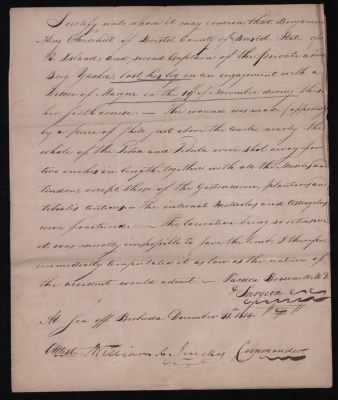 I certify unto whom it may concern that Benjamin
King Churchill of Bristol, County of Bristol State of
R. Island, and second Captain of the private armed
Brig Yankee, lost his leg in an engagement with a
Letter of Marque on the 19th of November during this
her fifth cruise. — The wound was made apparently
by a piece of shell just above the ancle nearly the
whole of the Tibia and Fibula were shot away for
two inches in length, together with all the Muscles and
tendons except those of the Gastrocnemii, plantaris and
tibialis anticus — the internal Malleolus and Astragalus
were fractured. — The laceration being so extensive
it was morally impossible to save the limb & I therefore
immediately amputated it as low as the nature of
the accident would admit. —
Brownell M.D
Surgeon
At Sea off Berbuda December 1814.
Attest William C. Jenckes Commander